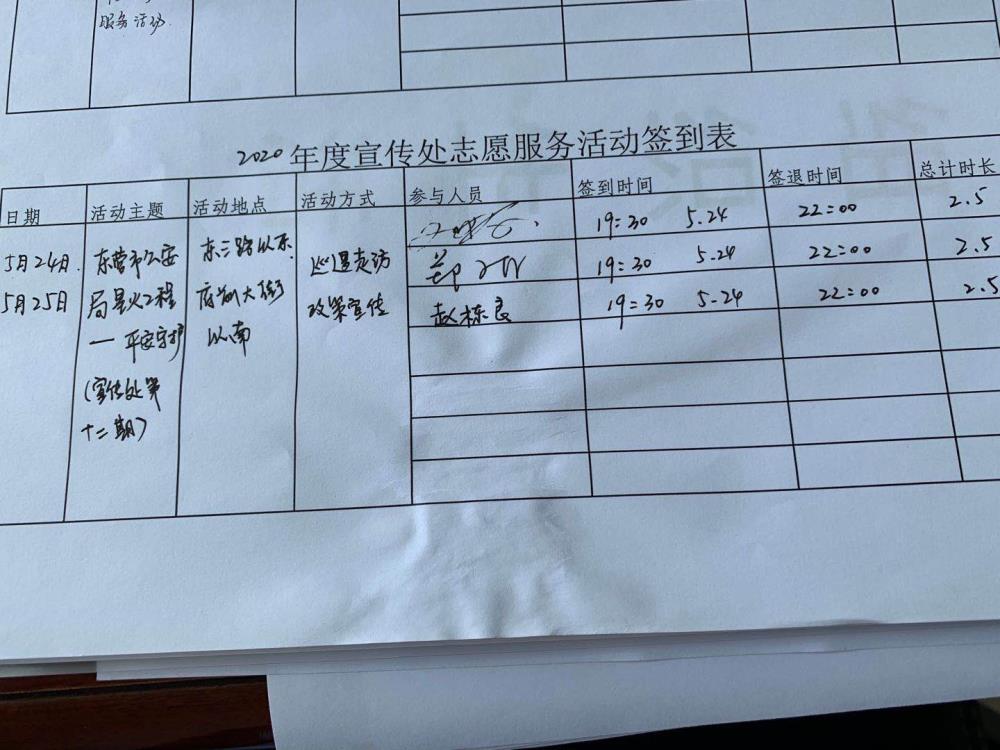 服务活动.
2020年度宣传处志愿服务活动签到表
日期 活动主题 活动地点 活动方式 参与人员 签到时间 签退时间 总计时长
5月24日.
5月25日
东营市公安
局星火工程
一 平安守护
(宣传处第
十二期)
东三路以东.
府前大街
以南
巡逻走访
政策宣传
19:30 5.24 22:00 2.5
郑 19:30 5.24 22:00 2.5
赵栋良 19:30 5.24 22:00 2.5